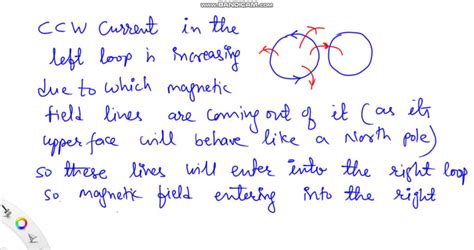 www.BANDICAM.com
CCW Current in the
left loop is increasing
due to which magnetic
field lines are coming out of it (as its
upper face will behave like a North pole)
so these lines will enter into the right loop
so magnetic field entering into the right